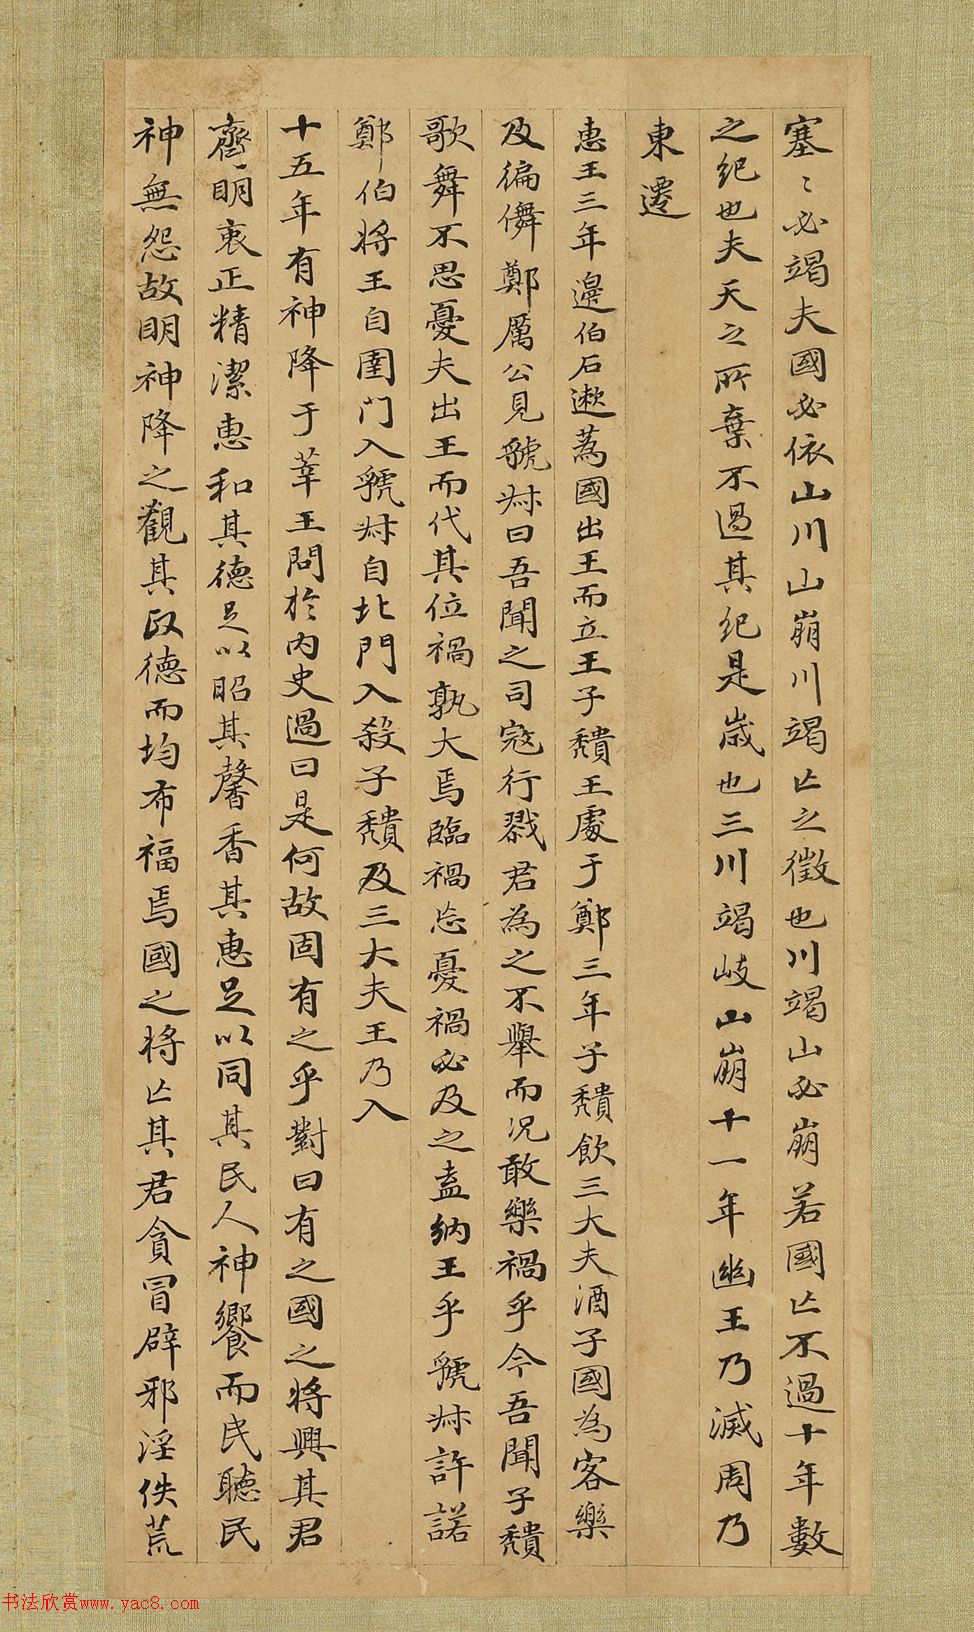 塞〻必竭夫國必依山川山崩川竭亡之徵也川竭山必崩若國亡不過十年數
之紀也夫天之所棄不過其紀是歲也三川竭岐山崩十一年幽王乃滅周乃
東遷
惠王三年邊伯石遬蔿國出王而立王子穨王處于鄭三年子穨飲三大夫酒子國為客樂
及徧儛鄭厲公見虢叔曰吾聞之司寇行戮君為之不舉而況敢樂禍乎今吾聞子穨
歌舞不思憂夫出王而代其位禍孰大焉臨禍忘憂禍必及之盍納王乎虢叔許諾
鄭伯将王自圉門入虢叔自北門入殺子穨及三大夫王乃入
十五年有神降于莘王問於內史過曰是何故固有之乎對曰有之國之将興其君
齊明衷正精潔惠和其德足以昭其馨香其惠足以同其民人神饗而民聽民
神無怨故明神降之觀其政德而均布福焉國之将亡其君貪冒辟邪淫佚荒
书法欣赏www.yac8.com